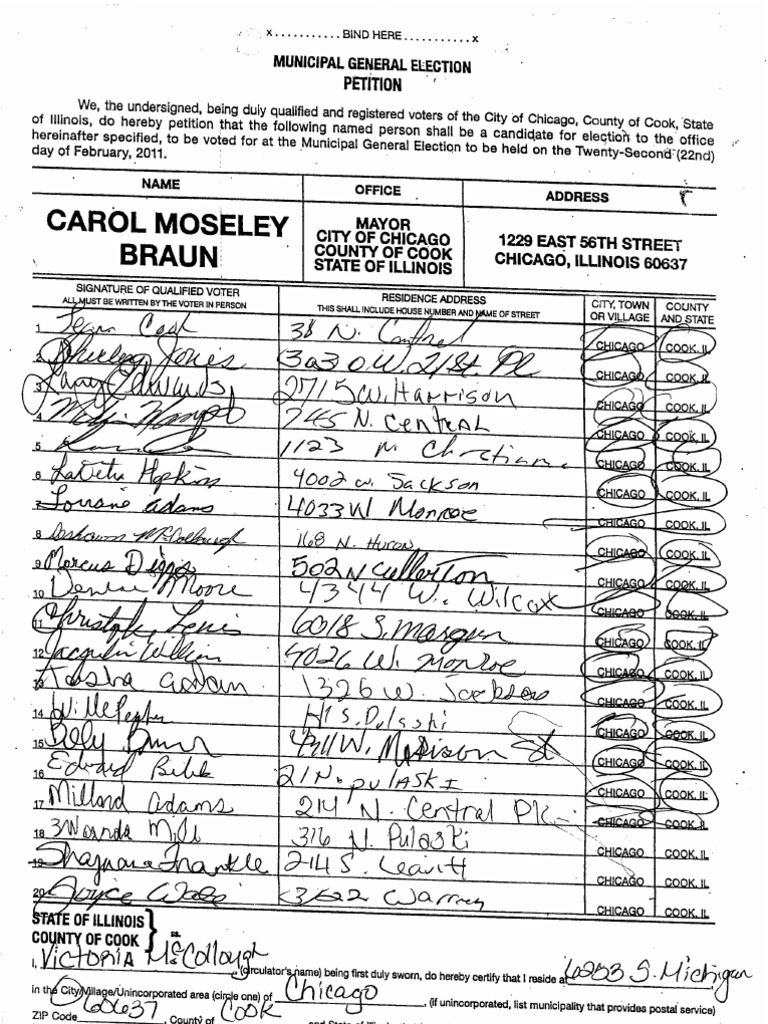 x...........BIND HERE...........x
MUNICIPAL GENERAL ELECTION
PETITION
We, the undersigned, being duly qualified and registered voters of the City of Chicago, County of Cook, State
of Illinois, do hereby petition that the following named person shall be a candidate for election to the office
hereinafter specified, to be voted for at the Municipal General Election to be held on the Twenty-Second (22nd)
day of February, 2011.
NAME OFFICE ADDRESS
CAROL MOSELEY BRAUN
MAYOR
CITY OF CHICAGO
COUNTY OF COOK
STATE OF ILLINOIS
1229 EAST 56TH STREET
CHICAGO, ILLINOIS 60637
SIGNATURE OF QUALIFIED VOTER
ALL MUST BE WRITTEN BY THE VOTER IN PERSON
RESIDENCE ADDRESS
THIS SHALL INCLUDE HOUSE NUMBER AND NAME OF STREET
CITY, TOWN OR VILLAGE
COUNTY AND STATE
1 38 N. CHICAGO COOK, IL
2 Shirley Jones W. 21st. Pl CHICAGO COOK, IL
3 Larry Edwards 2715 W. Harrison CHICAGO COOK, IL
4 745 N. CENTRAL CHICAGO COOK, IL
5 1123 N. CHICAGO COOK, IL
6 Hopkins 4002 W. Jackson CHICAGO COOK, IL
7 Lorraine Adams 4033 W Monroe CHICAGO COOK, IL
8 168 N. Huron CHICAGO COOK, IL
9 Marcus Diggs 502 N Cullerton CHICAGO COOK, IL
10 Denise Moore 4344 W. Wilcox CHICAGO COOK, IL
11 Lewis 6018 S. CHICAGO COOK, IL
12 4026 W. Monroe CHICAGO COOK, IL
13 Tasha 1326 W. Jackson CHICAGO COOK, IL
14 S. Pulaski CHICAGO COOK, IL
15 W. Madison St CHICAGO COOK, IL
16 Edward 21 N. PULASKI CHICAGO COOK, IL
17 Millard Adams 214 N. Central Pk CHICAGO COOK, IL
18 316 N. Pulaski CHICAGO COOK, IL
19 214 S. Leavitt CHICAGO COOK, IL
20 Joyce 3522 Warren CHICAGO COOK, IL
STATE OF ILLINOIS
COUNTY OF COOK } ss.
I, Victoria McCollough, (circulator's name) being first duly sworn, do hereby certify that I reside at 6253 S. Michigan
in the City/Village/Unincorporated area (circle one) of Chicago, (if unincorporated, list municipality that provides postal service)
ZIP Code 60637, County of Cook and State of Illinois